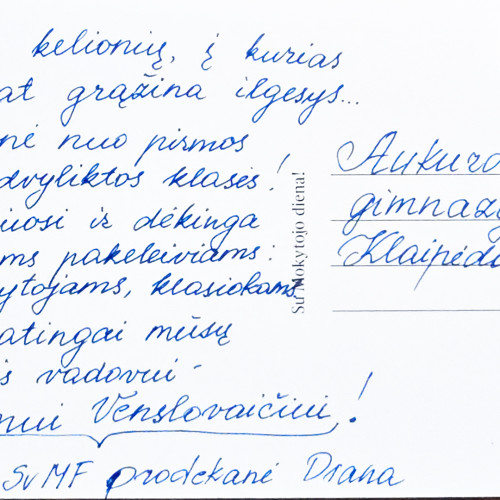 kelionių, į kurias
at grąžina ilgesys...
nė nuo pirmos
dvyliktos klasės!
uosi ir dėkinga
ms pakeleiviams:
ytojams, klasiokams
atingai mūsų
is vadovui -
nui Venslovaičiui!
SvMF prodekanė Diana
Su Mokytojo diena!
Aukuro
gimnazi
Klaipėda